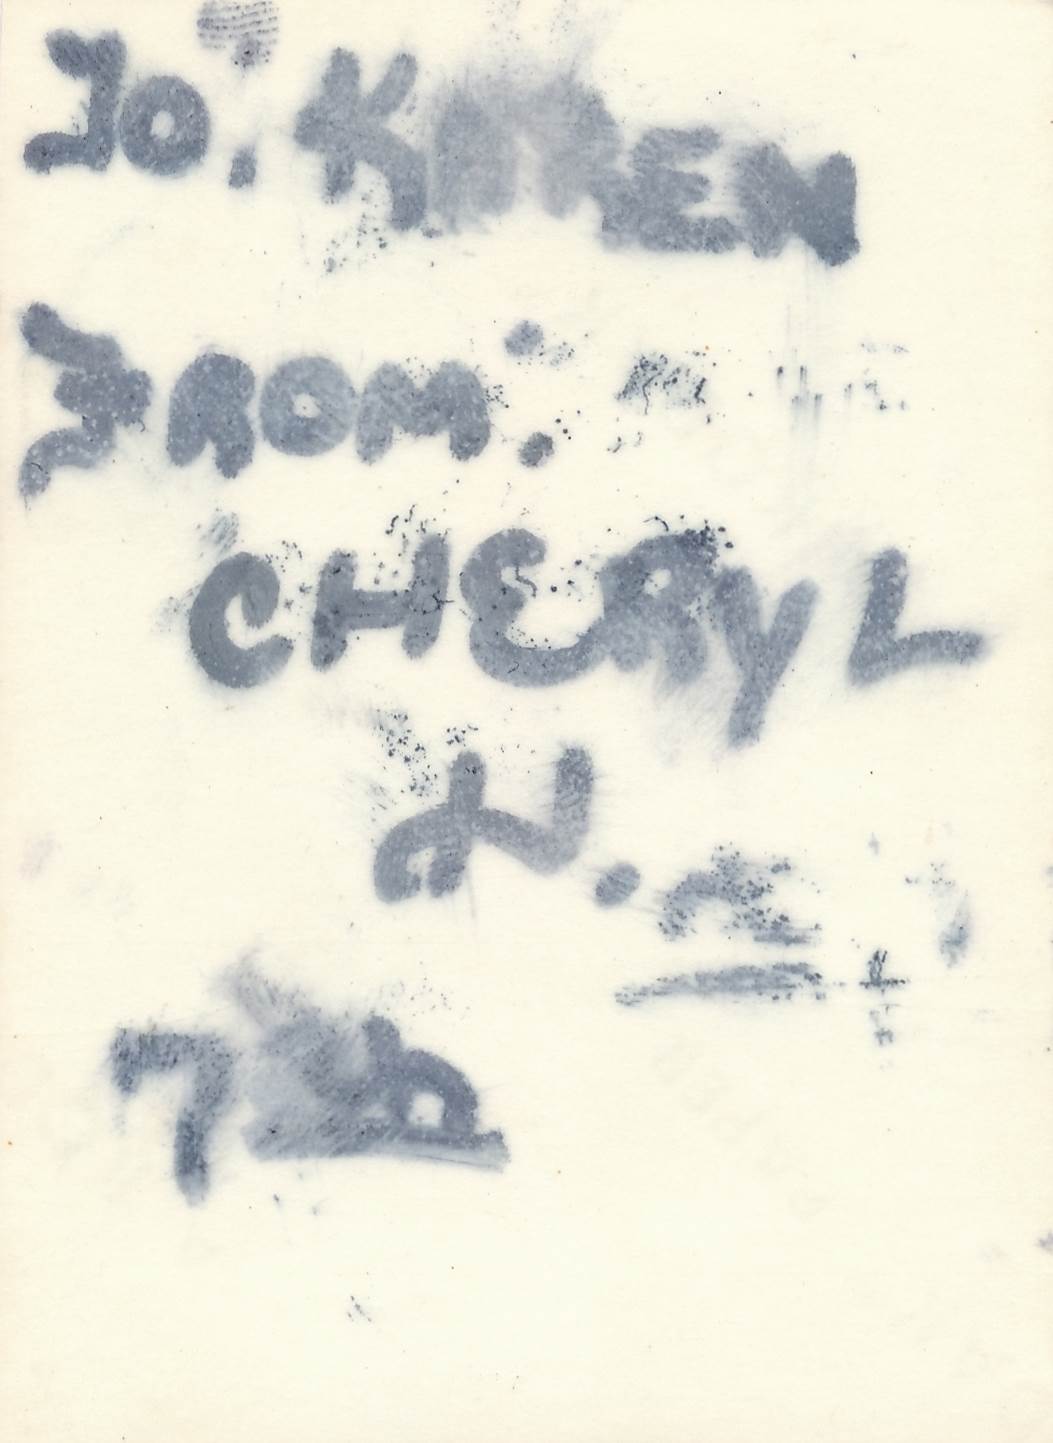 TO, KAREN
FROM:
CHERYL
N.